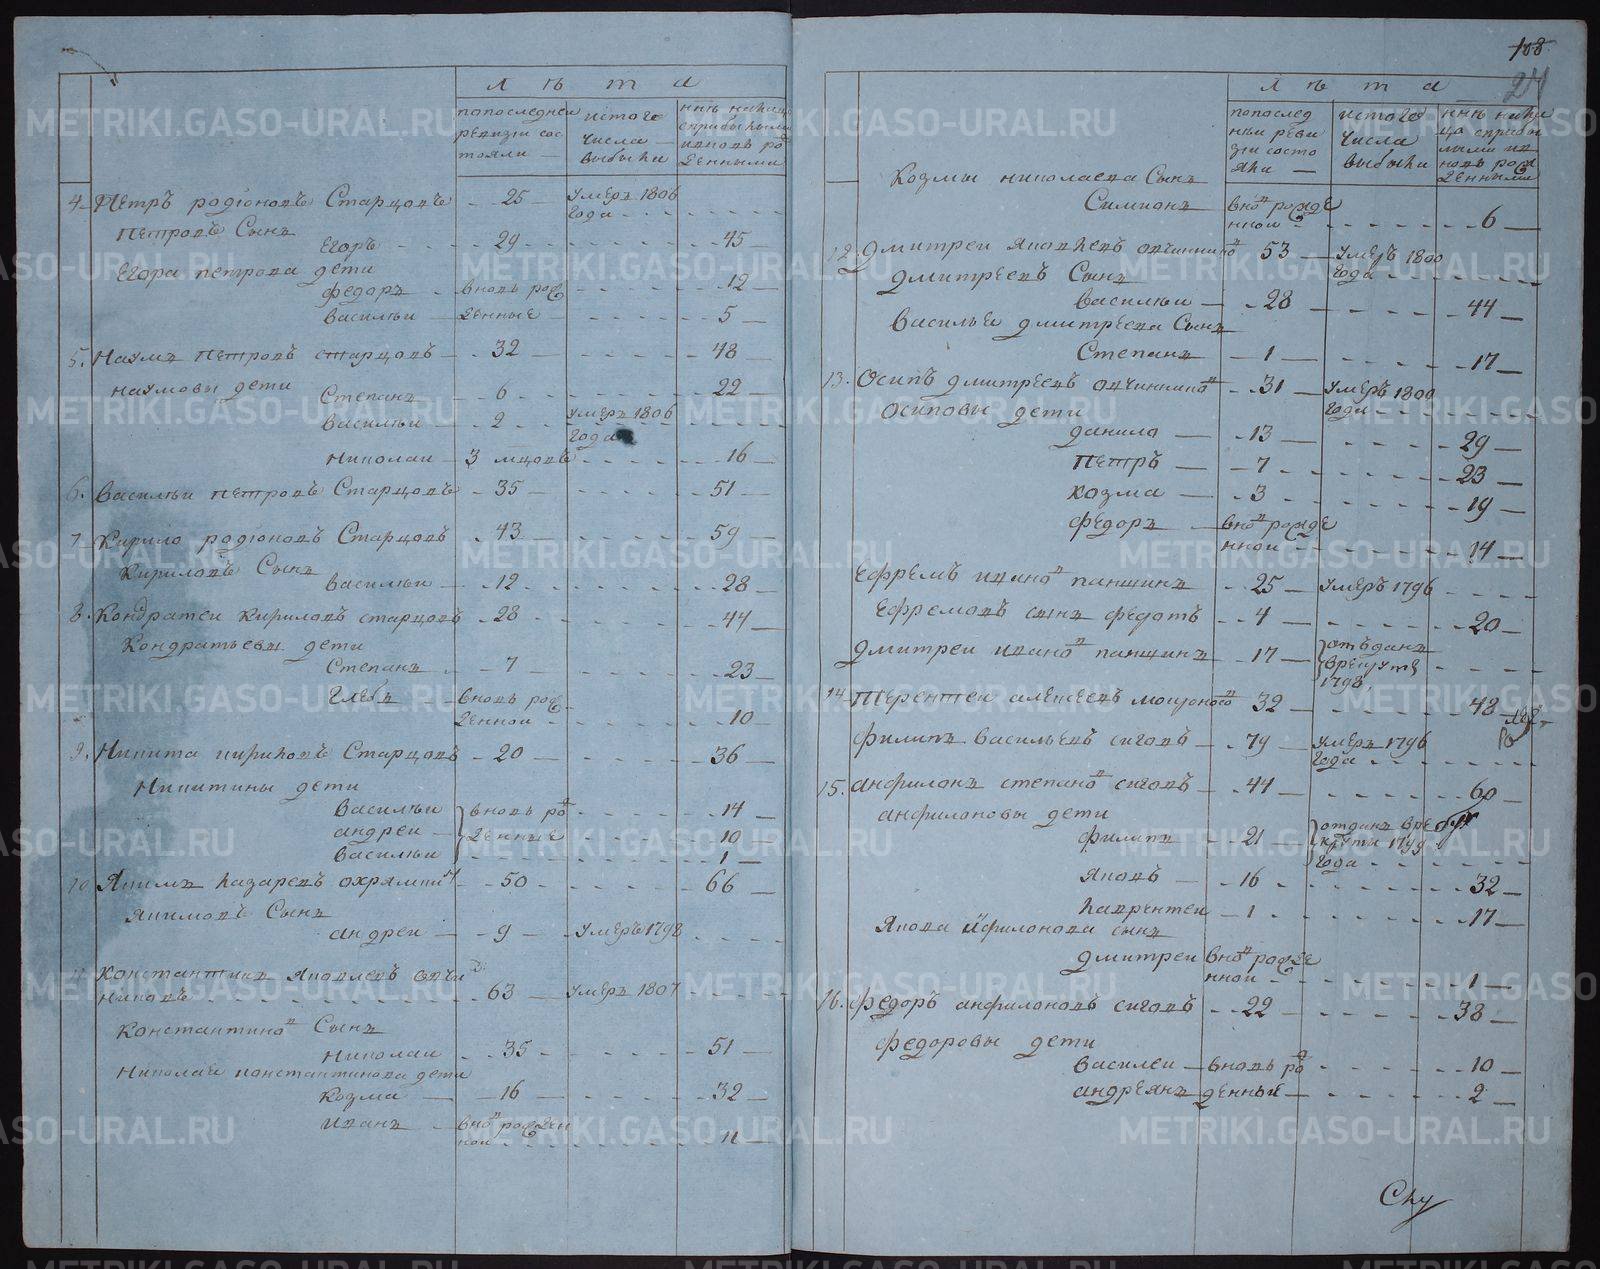 Лѣта
попоследнеи ревизiи состояли
истого числа выбыли
4. Петръ родiоновъ Старцовъ 25 Умеръ 1806 года
Петровъ Сынъ
Егоръ 29 45
Егора петрова дети
Федоръ вновь рож 12
Василѣи денные 5
5. Наумъ Петровъ старцовъ 32 48
наумовы дети
Степанъ 6 22
Василѣи 2 Умеръ 1806 года
Николаи 3 мцовъ 16
6. Василѣи петровъ Старцовъ 35 51
7. Кирило родiоновъ Старцовъ 43 59
Кириловъ Сынъ
Василѣи 12 28
8. Кондратеи Кириловъ старцовъ 28 44
Кондратьевы дети
Степанъ 7 23
Глебъ вновь рож
денной 10
9. Никита кириловъ Старцовъ 20 36
Никитины дети
Василѣи вновь ро 14
андреи денные 10
Василѣи 1
10. Якимъ назаревъ 50 66
Якимовъ Сынъ
андреи 9 Умеръ 1798
11. Константинъ Яковлевъ овчи
никовъ 63 Умеръ 1807
Константинов Сынъ
Николаи 35 51
Николаи константинова дети
Козма 16 32
Иванъ вно рожден
ной 11
108
24
Лѣта
попослед неи реви зiи состо яли
истого числа выбыли
Козмы николаева Сынъ
Симионъ вно рожде
нной 6
12. Дмитреи Яковлевъ овчинников 53 Умеръ 1800 года
Дмитревъ Сынъ
Василѣи 28 44
Василья дмитрева Сынъ
Степанъ 1 17
13. Осипъ дмитревъ овчинников 31 Умеръ 1800 года
Осиповы дети
данило 13 29
Петръ 7 23
Козма 3 19
Федоръ вно рожде
нной 14
Ефремъ ивано паншинъ 25 Умеръ 1796
Ефремовъ сынъ федотъ 4 20
Дмитреи ивано паншинъ 17 отъданъ врекруты 1798
14. Терентеи алексеевъ 32 48
Филипъ Васильевъ сиговъ 79 Умеръ 1796 года
15. Анфилонъ степано сиговъ 44 60
анфилоновы дети
Филипъ 21 отданъ вре круты 1799 года
Яковъ 16 32
лаврентеи 1 17
Якова анфилонова сынъ
Дмитреи вно рожде
нной 1
16. Федоръ анфилоновъ сиговъ 22 38
Федоровы дети
Василеи вновь ро 10
андреянъ денные 2
METRIKI.GASO-URAL.RU